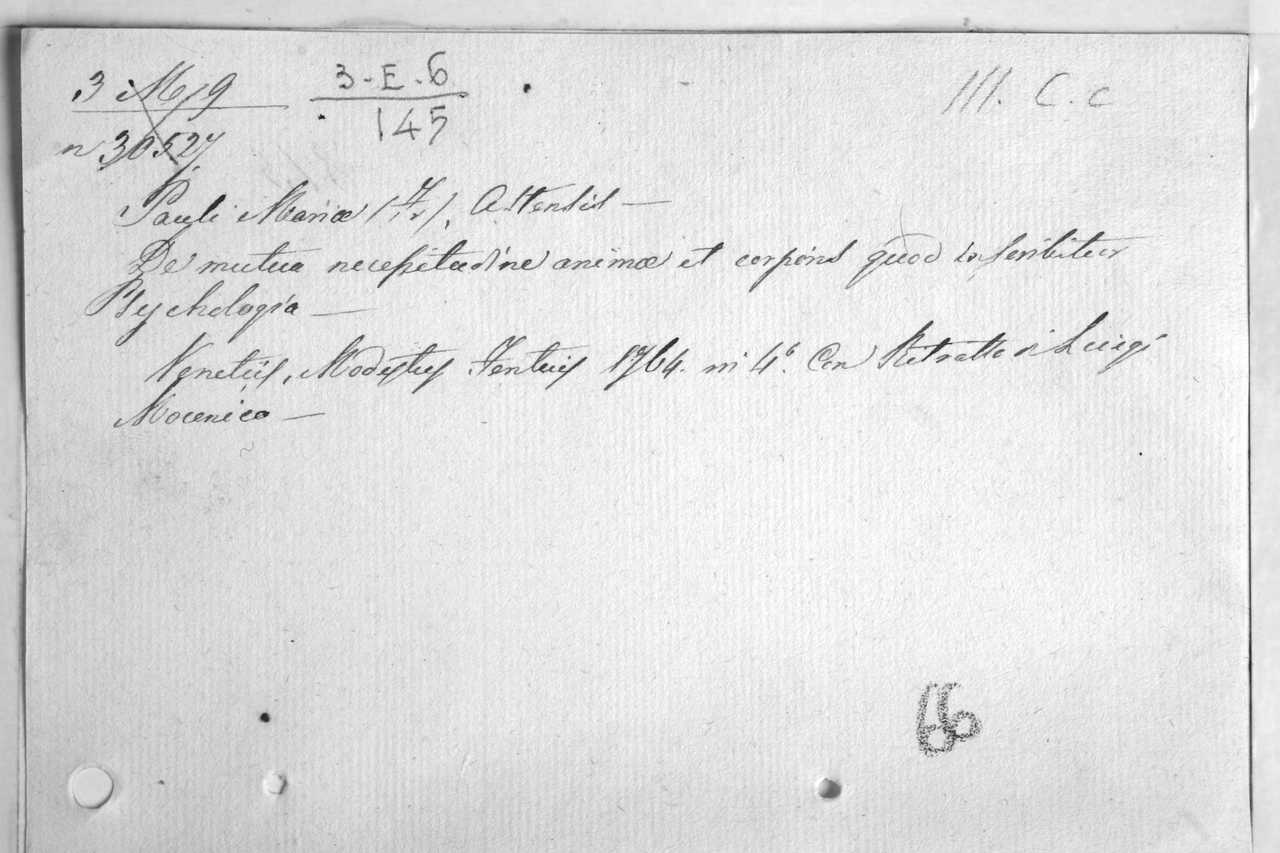 3 M 9
n 30527
3-E-6
145
III. C. c
Pauli Mariæ (Fr.), Astensis —
De mutua necessitudine animæ et corporis quod inscribitur
Psychologia —
Venetiis, Modestus Fentius 1764. in 4º. Con Ritratto di Luigi
Mocenico —
66